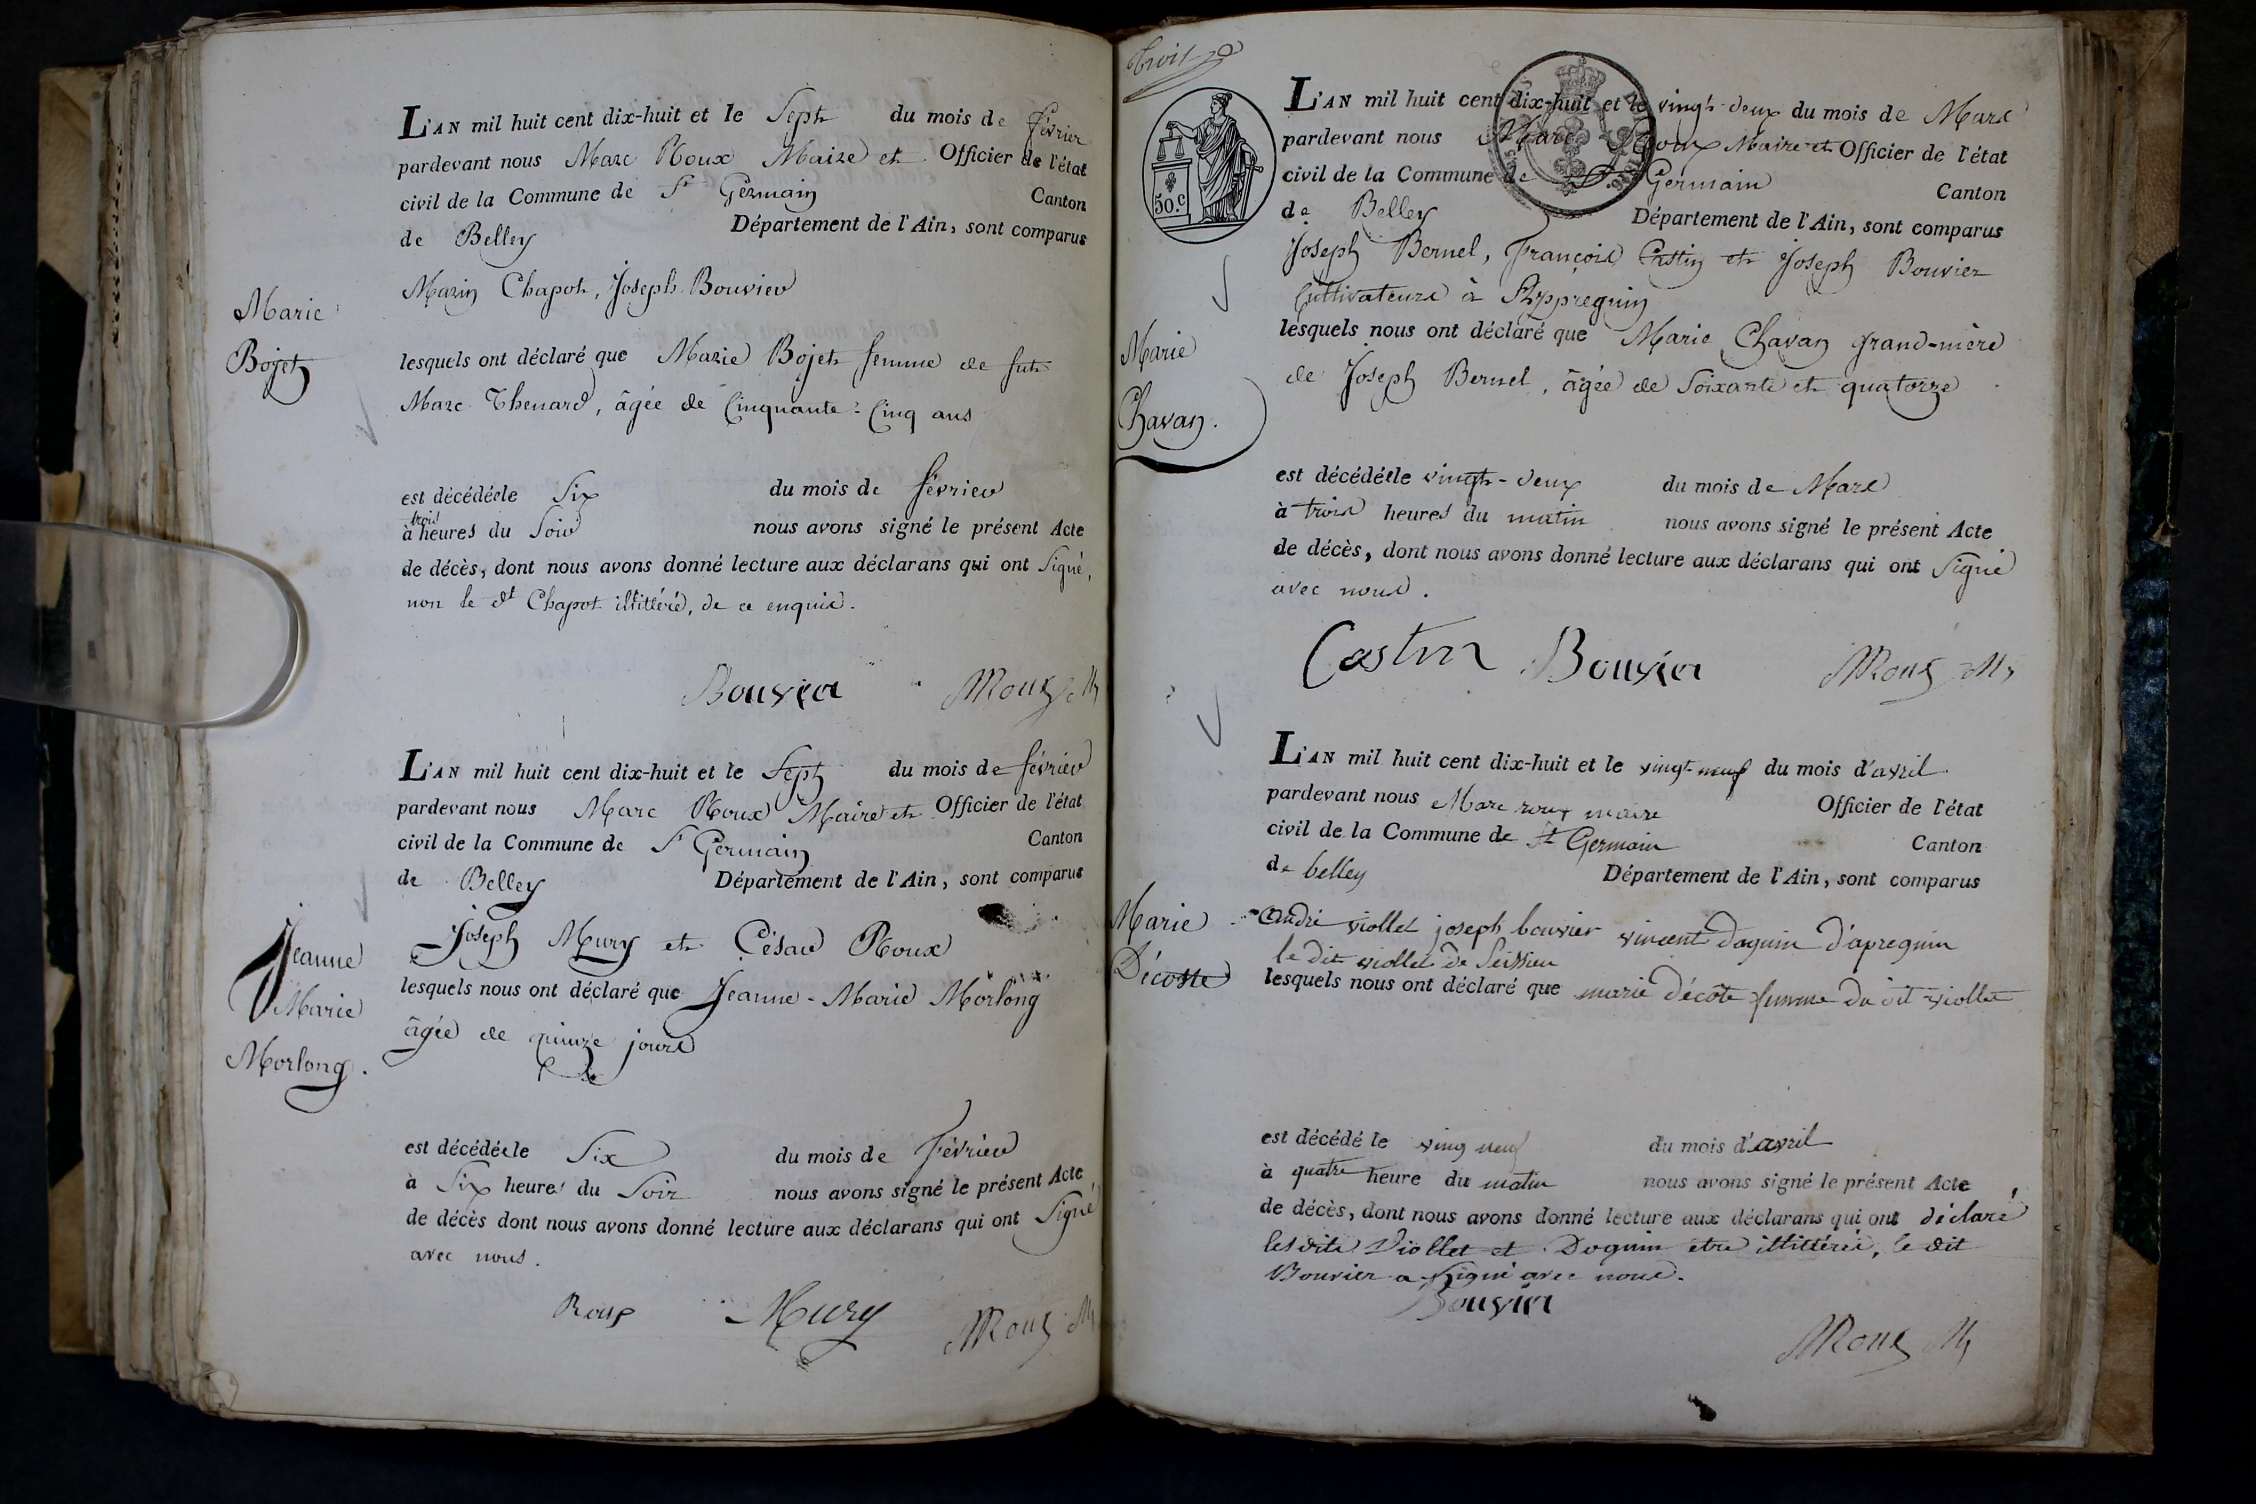 L'AN mil huit cent dix-huit et le Sept du mois de février
pardevant nous Marc Roux Maire et Officier de l'état
civil de la Commune de St Germain Canton
de Belley Département de l'Ain, sont comparus
Marin Chapot, Joseph Bouvier
Marie
Bojet
lesquels ont déclaré que Marie Bojet femme de fut
Marc Thenard, âgée de Cinquante-Cinq ans
est décédée le Six du mois de février
trois
à heures du Soir nous avons signé le présent Acte
de décès, dont nous avons donné lecture aux déclarans qui ont Signé,
non le dt Chapot illittéré, de ce enquis.
Bouvier MRoux M
L'AN mil huit cent dix-huit et le Sept du mois de février
pardevant nous Marc Roux Maire et Officier de l'état
civil de la Commune de St Germain Canton
de Belley Département de l'Ain, sont comparus
Joseph Mury et César Roux
Jeanne
Marie
Morlong.
lesquels nous ont déclaré que Jeanne-Marie Morlong
âgée de quinze jours
est décédée le Six du mois de février
à Six heures du Soir nous avons signé le présent Acte
de décès dont nous avons donné lecture aux déclarans qui ont Signé
avec nous.
Roux Mury MRoux M
trois
50.c
L'AN mil huit cent dix-huit et le vingt-deux du mois de Mars
pardevant nous Marc Roux Maire et Officier de l'état
civil de la Commune de St Germain Canton
de Belley Département de l'Ain, sont comparus
Joseph Bernel, François Castin et Joseph Bouvier
Cultivateurs à Appregnin
Marie
Chavan.
lesquels nous ont déclaré que Marie Chavan grand-mère
de Joseph Bernel, âgée de Soixante et quatorze
est décédée le vingt-deux du mois de Mars
à trois heures du matin nous avons signé le présent Acte
de décès, dont nous avons donné lecture aux déclarans qui ont Signé
avec nous.
Castin Bouvier MRoux M
L'AN mil huit cent dix-huit et le vingt-neuf du mois d'avril
pardevant nous Marc roux maire Officier de l'état
civil de la Commune de St Germain Canton
de belley Département de l'Ain, sont comparus
Marie
Décoste
andré viollet joseph bouvier vincent doguin d'apregnin
le dit viollet de Seissieu
lesquels nous ont déclaré que marie décôte femme du dit viollet
est décédé le ving neuf du mois d'avril
à quatre heure du matin nous avons signé le présent Acte
de décès, dont nous avons donné lecture aux déclarans qui ont déclaré
lesdits Viollet et Doguin etre illittérés, le dit
Bouvier a signé avec nous.
Bouvier
MRoux M